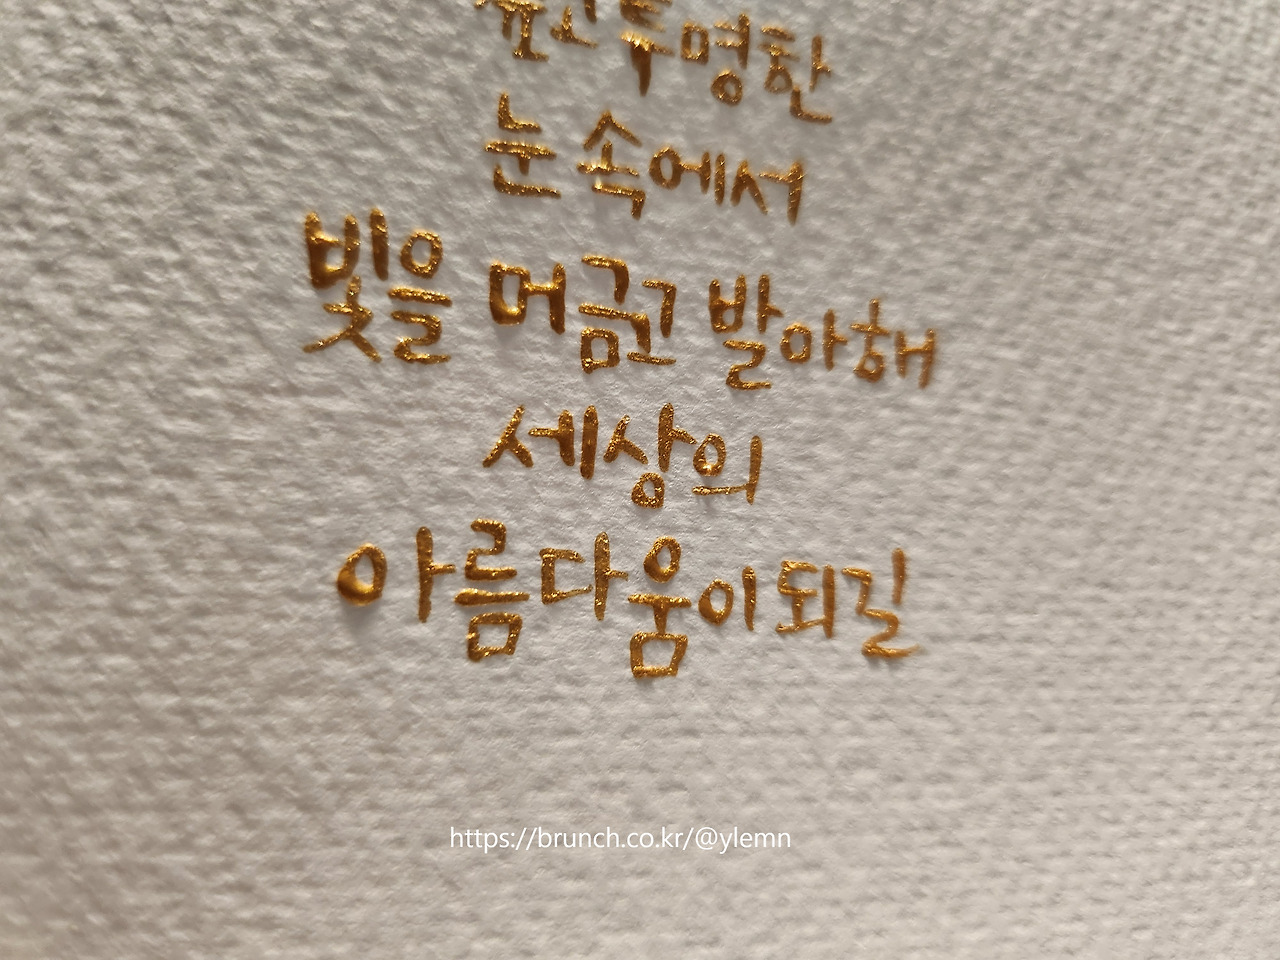 투명한
눈 속에서
빛을 머금고 발아해
세상의
아름다움이 되길
https://brunch.co.kr/@ylemn